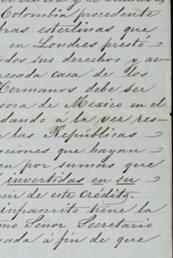 Colombia procedente
bras esterlinas que
en Londres prestó
odos sus derechos y ac
reçada casa de los
Hermanos debe ser
sora de Mexico en el
dando a la vez res
las Repúblicas
ciones que hayan
en por sumas que
invertidas en su
de este Crédito.
infrascrito tiene la
mo Señor Secretario
nada a fin de que